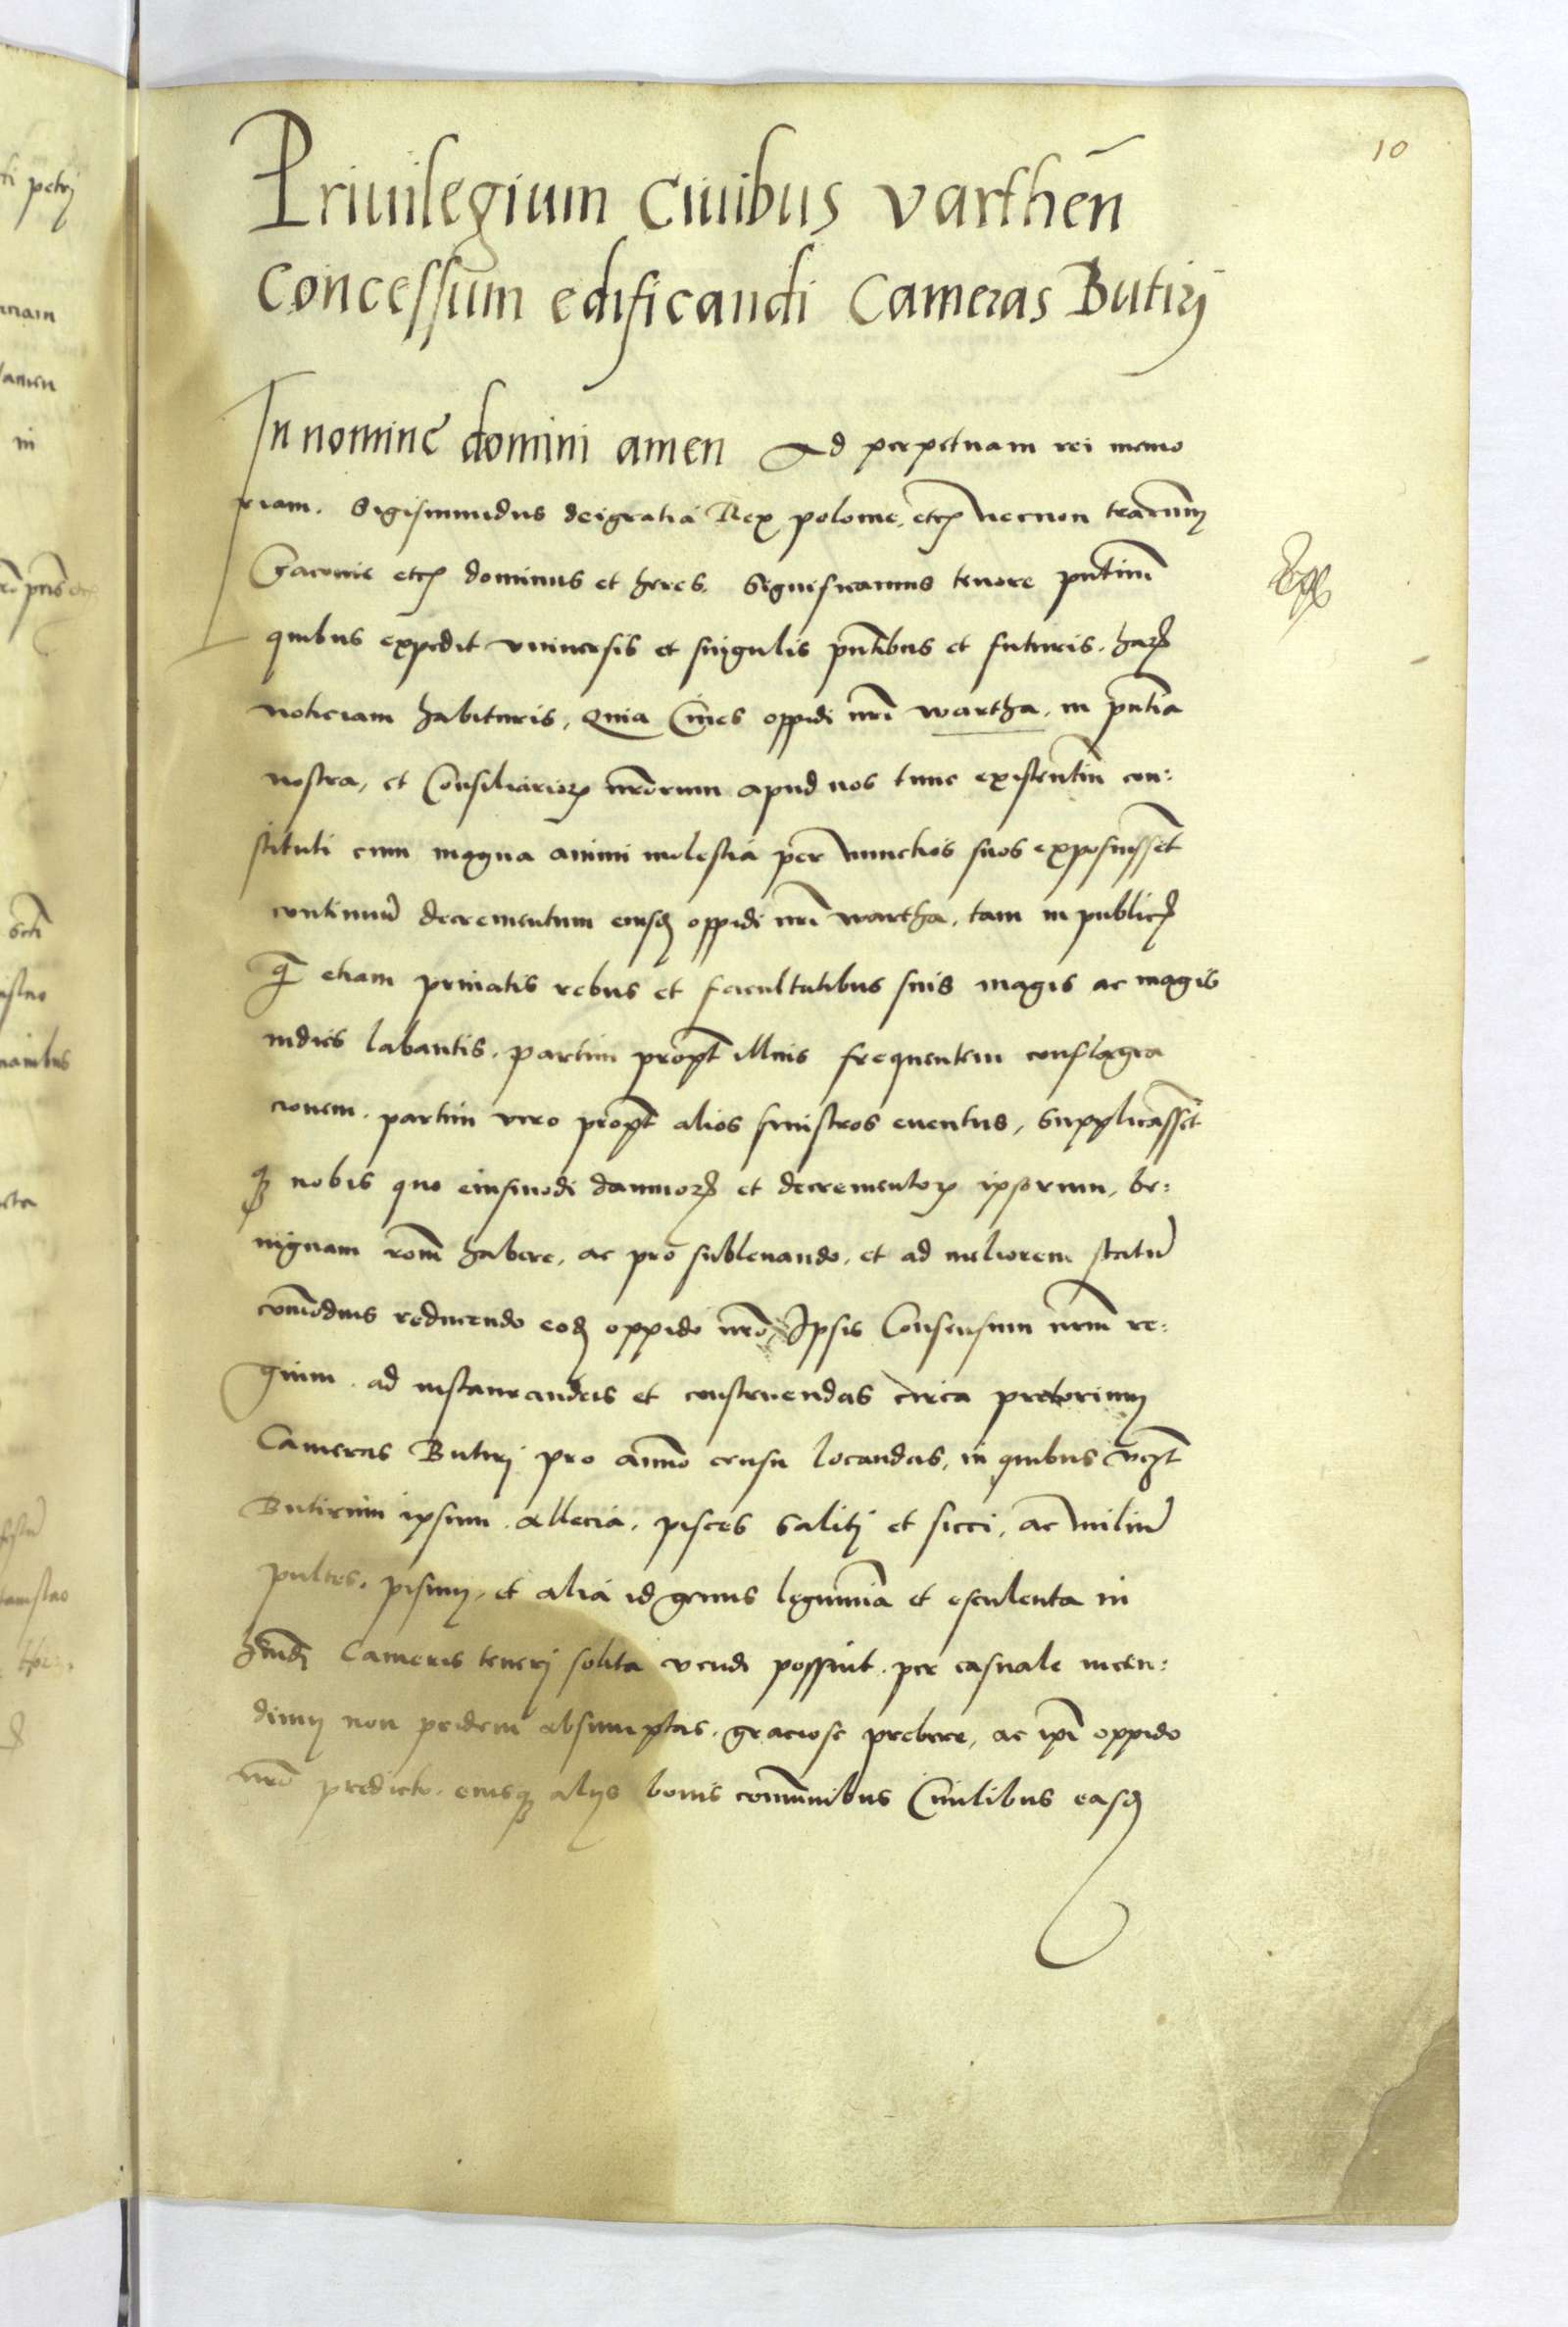 10
Priuilegium Ciuibus varthen̄
concessum edificandi Cameras Butirj
In nomine domini amen Ad perpetuam rei memo
riam. Sigismundus deigratia Rex polonie. etcꝫ necnon terarum
Cracouie etcꝫ dominus et heres. Significamus tenore pn̄tium
quibus expedit vniuersis et singulis pn̄tibus et futuris. harꝫ
noticiam habituris, Quia Ciues oppidi nr̄i wartha, in pn̄tia
nostra, et Consiliarioꝝ nr̄orum apud nos tunc existentiū con:
stituti cum magna animi molestia per nunctios suos exposuissēt
continuū decrementum eiusdꝫ oppidi nr̄i wartha. tam in publicꝫ
q̄ etiam priuatis rebus et facultatibus suis magis ac magis
indies labantis. partim propt̄ illius frequentem conflagra
cionem. partim vero propt̄ alios sinistros euentus, supplicassēt
qꝫ nobis quo eiusmodi damnoꝝ et decrementoꝝ ipsorum, be:
nignam rōm habere, ac pro subleuando. et ad meliorem statū
com̄odius reducendo eodꝫ oppido nr̄o, Ipsis Consensum nr̄m re:
gium. ad instaurandas et construendas circa pretorium
Cameras Butirj pro annuo censu locandas, in quibus vꝫt
Butirum ipsum. allecia. pisces salitj et sicci, ac miliū
pultes. pisum, et alia id genus legumīa et esculenta in
hm̄odj Cameris tenerj solita vendi possint. per casuale incen:
dium non pridem absumptas. graciose prebere, ac ip̄i oppido
nr̄o predicto. eiusqꝫ alijs bonis com̄unibus Ciuilibus easdꝫ